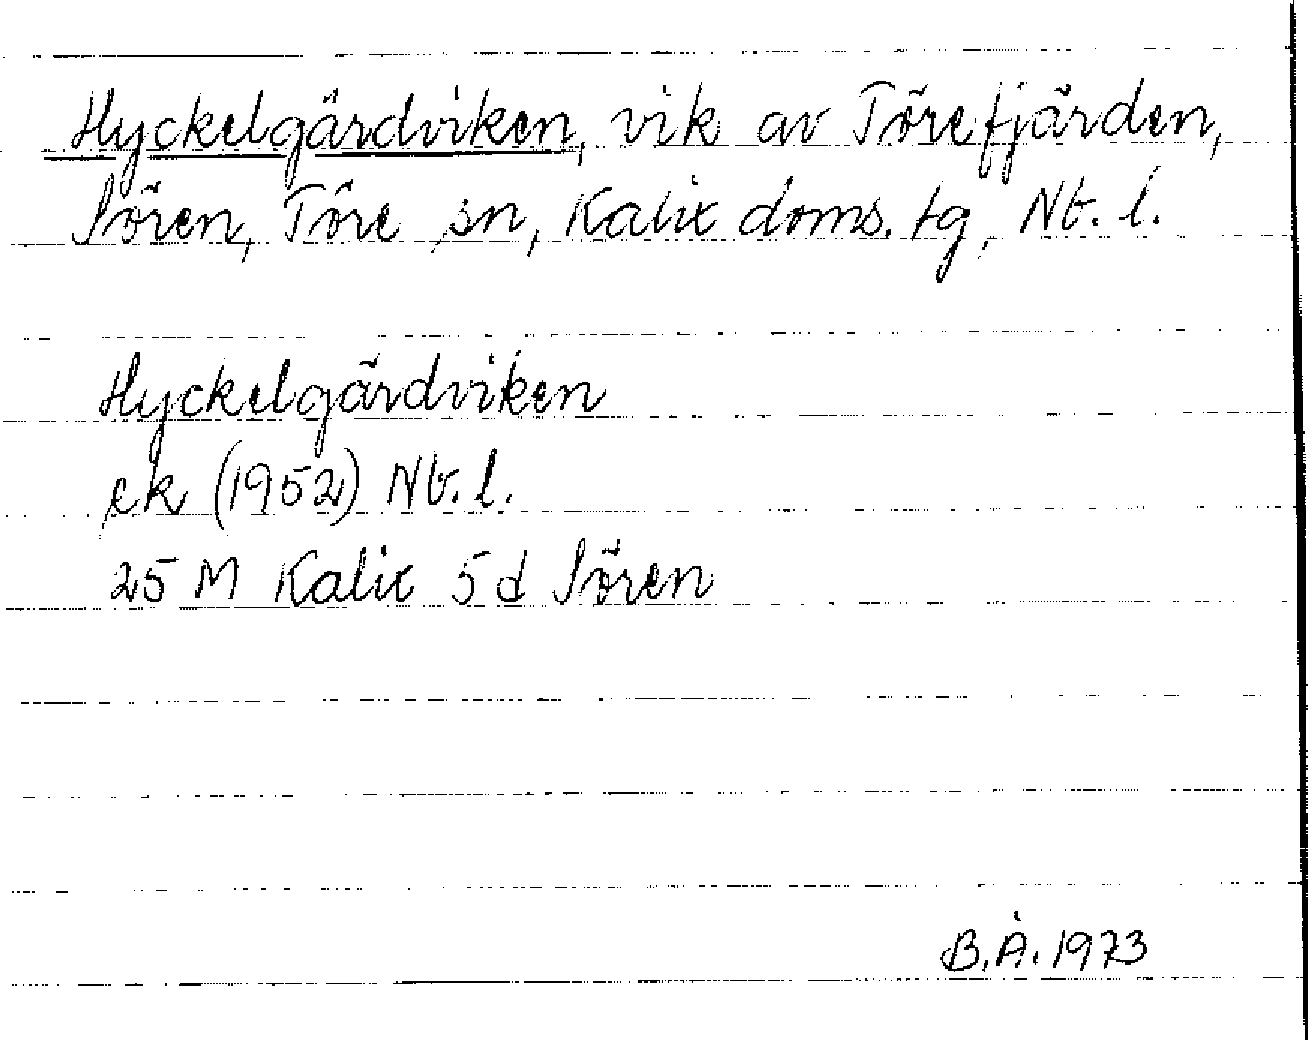 Hyckelgärdviken, vik av Törefjärden,
Sören, Töre sn, Kalix doms. tg, Nb. l.
Hyckelgärdviken
ek (1952) Nb. l.
25 M Kalix 5d Sören
B.Å. 1973